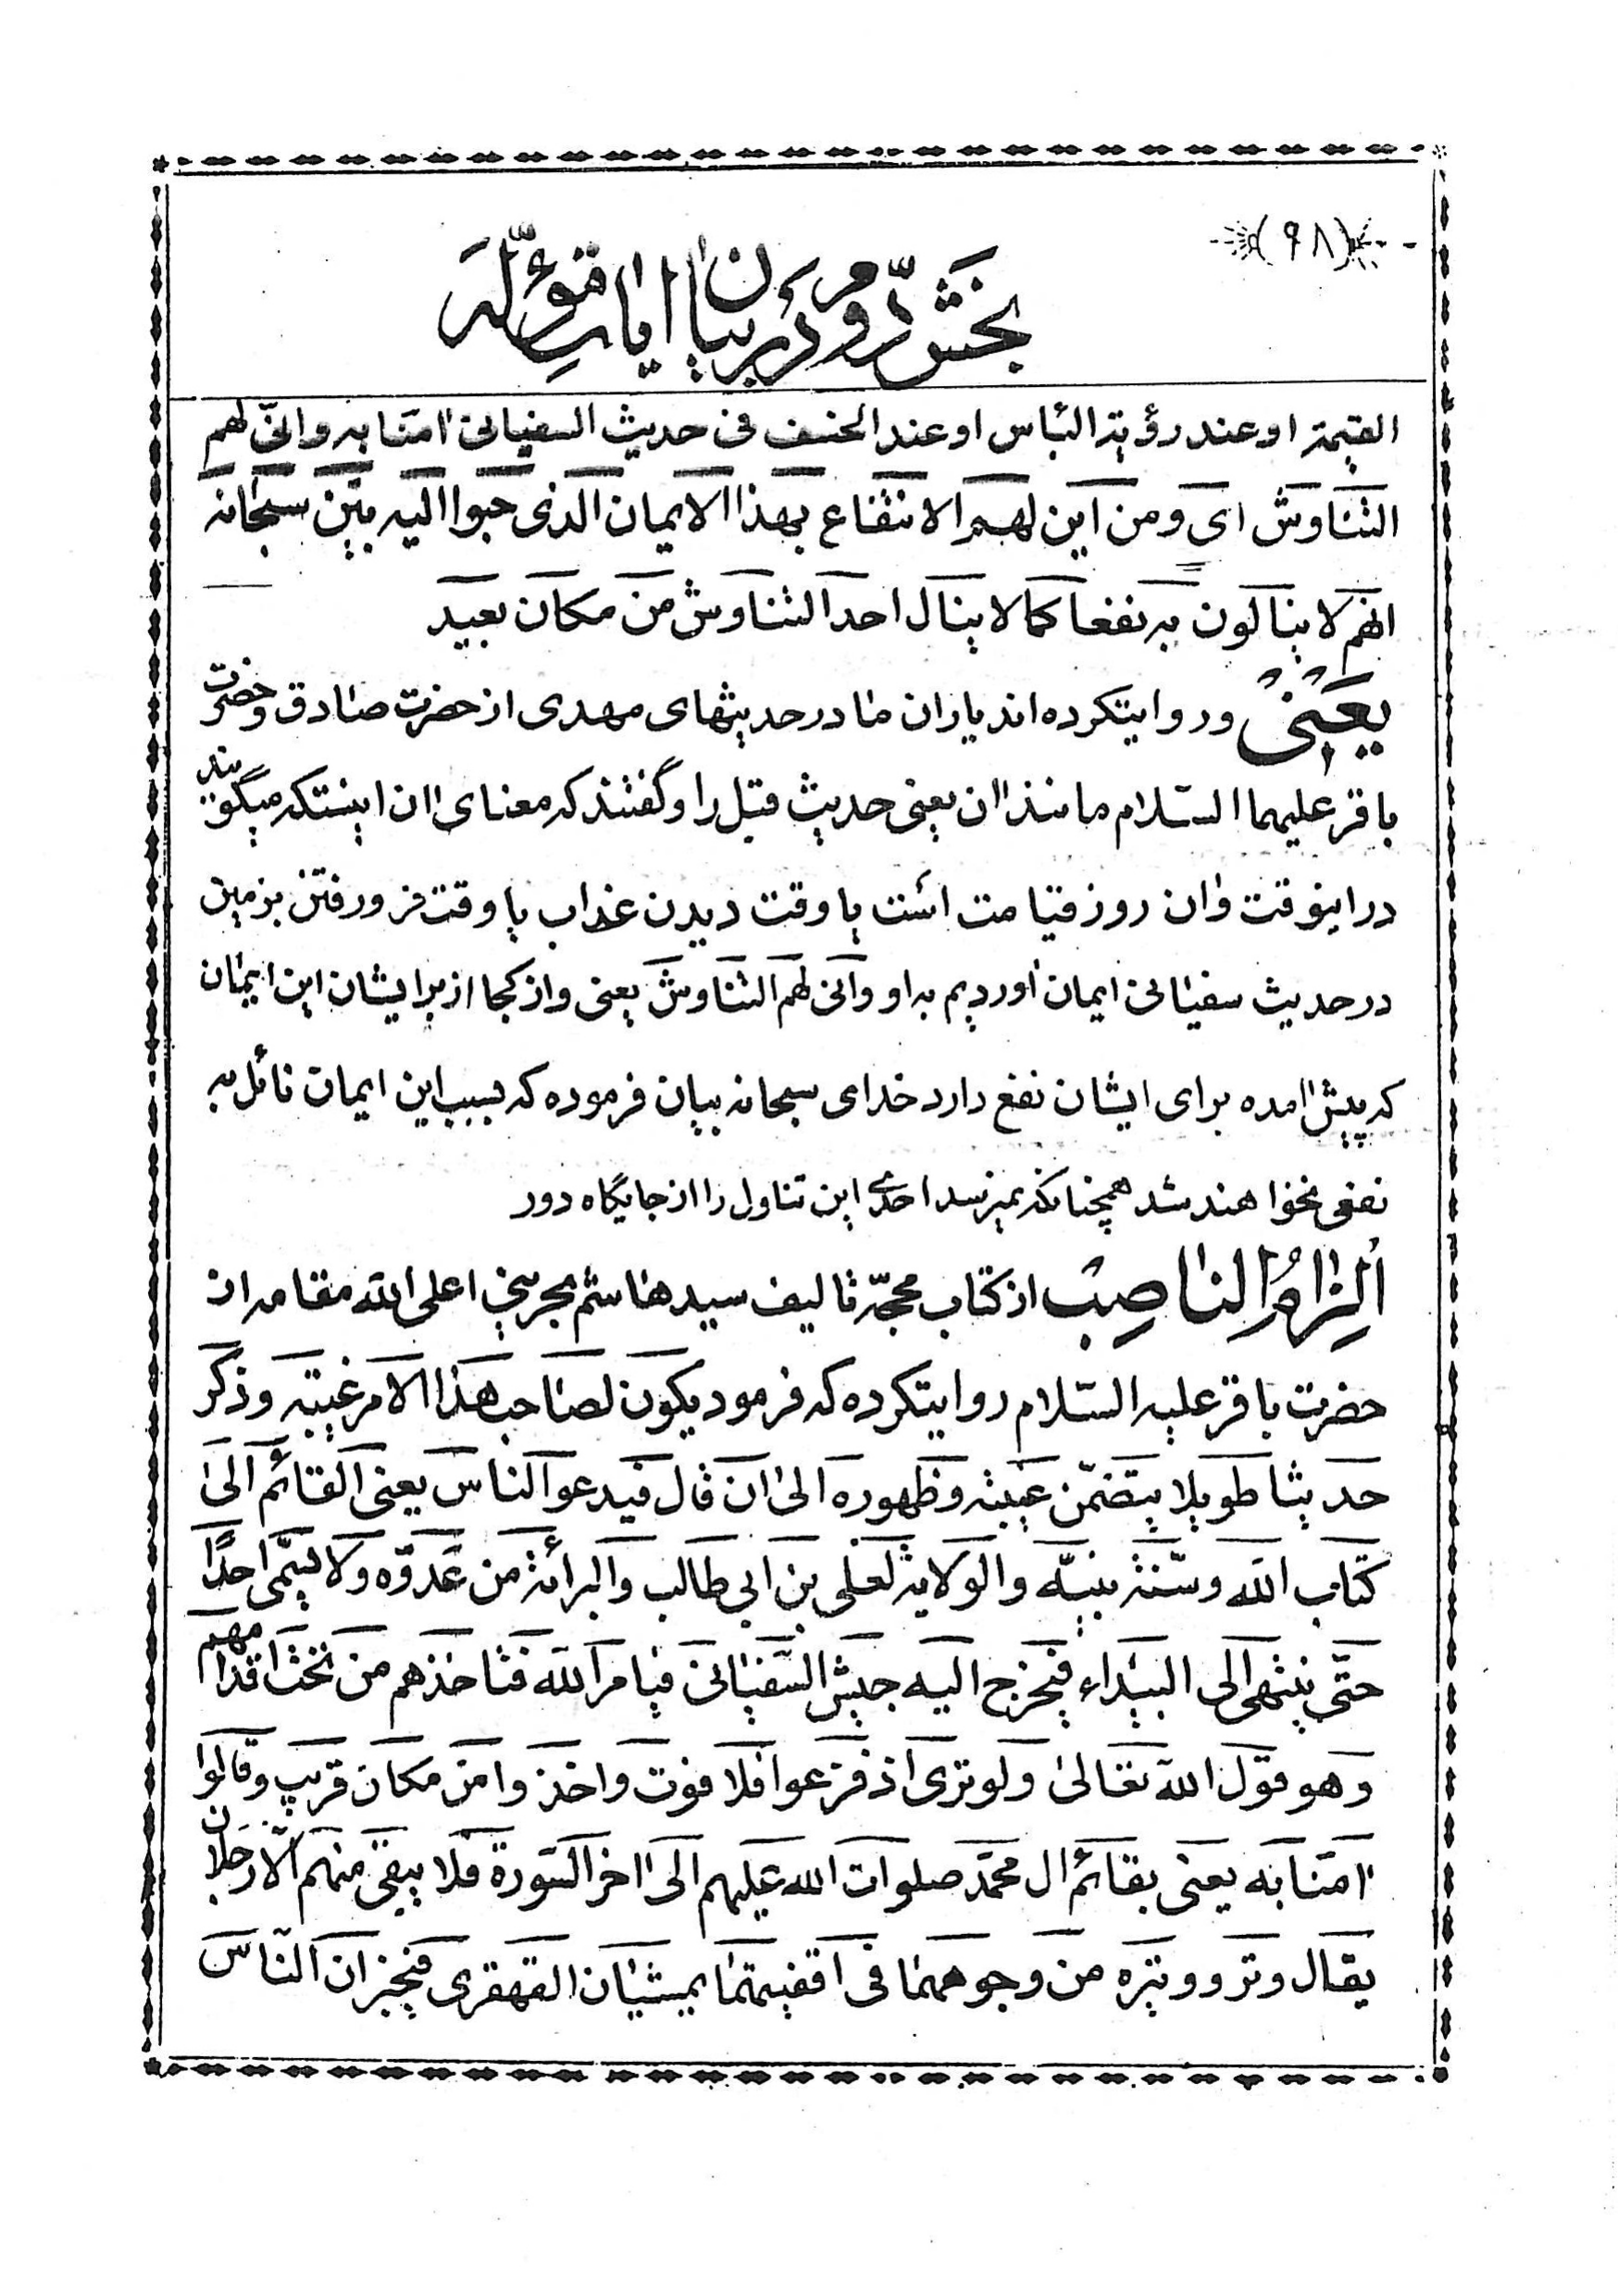 (۹۸)
بخش دوم در بیان ایات مؤوّله
القیمة او عند رؤیة البأس او عند الخسف فی حدیث السفیانی امنّا به وانّی لهم
التناوش ای ومن این لهم الانتفاع بهذا الایمان الذی جبوا الیه بیّن سبحانه
انهم لا ینالون به نفعا کما لا ینال احد التناوش من مکان بعید
یعنی وروایتکرده اند یاران ما در حدیثهای مهدی از حضرت صادق وحضرت
باقر علیهما السّلام مانند ان یعنی حدیث قبل را وگفتند که معنای ان اینستکه میگویند
در اینوقت وان روز قیامت است یا وقت دیدن عذاب یا وقت فرو رفتن بزمین
در حدیث سفیانی ایمان اوردیم به او وانّی لهم التناوش یعنی واز کجا از برایشان این ایمان
که پیش امده برای ایشان نفع دارد خدای سبحانه بیان فرموده که بسبب این ایمان نائل به
نفعی نخواهند شد همچنانکه نمیرسد احدی این تناول را از جایگاه دور
الزام الناصب از کتاب محجّه تالیف سید هاشم بحرینی اعلی الله مقامه از
حضرت باقر علیه السّلام روایتکرده که فرمود یکون لصاحب هذا الامر غیبة وذکر
حدیثا طویلا یتضمّن غیبته وظهوره الی ان قال فیدعو الناس یعنی القائم الی
کتاب الله وسنّة نبیّه والولایة لعلی بن ابی طالب والبرائة من عدوّه ولا یسمّی احدًا
حتّی ینتهی الی البیداء فیخرج الیه جیش السّفیانی فیامر الله فتاخذهم من تحت اقدامهم
وهو قول الله تعالی ولو تری اذ فزعوا فلا فوت واخذوا من مکان قریب وقالوا
امنّا به یعنی بقائم ال محمّد صلوات الله علیهم الی اخر السّورة فلا یبقی منهم الّا رجلان
یقال وتر ووتیره من وجوههما فی اقفیتهما یمشیان القهقری فیخبران النّاس